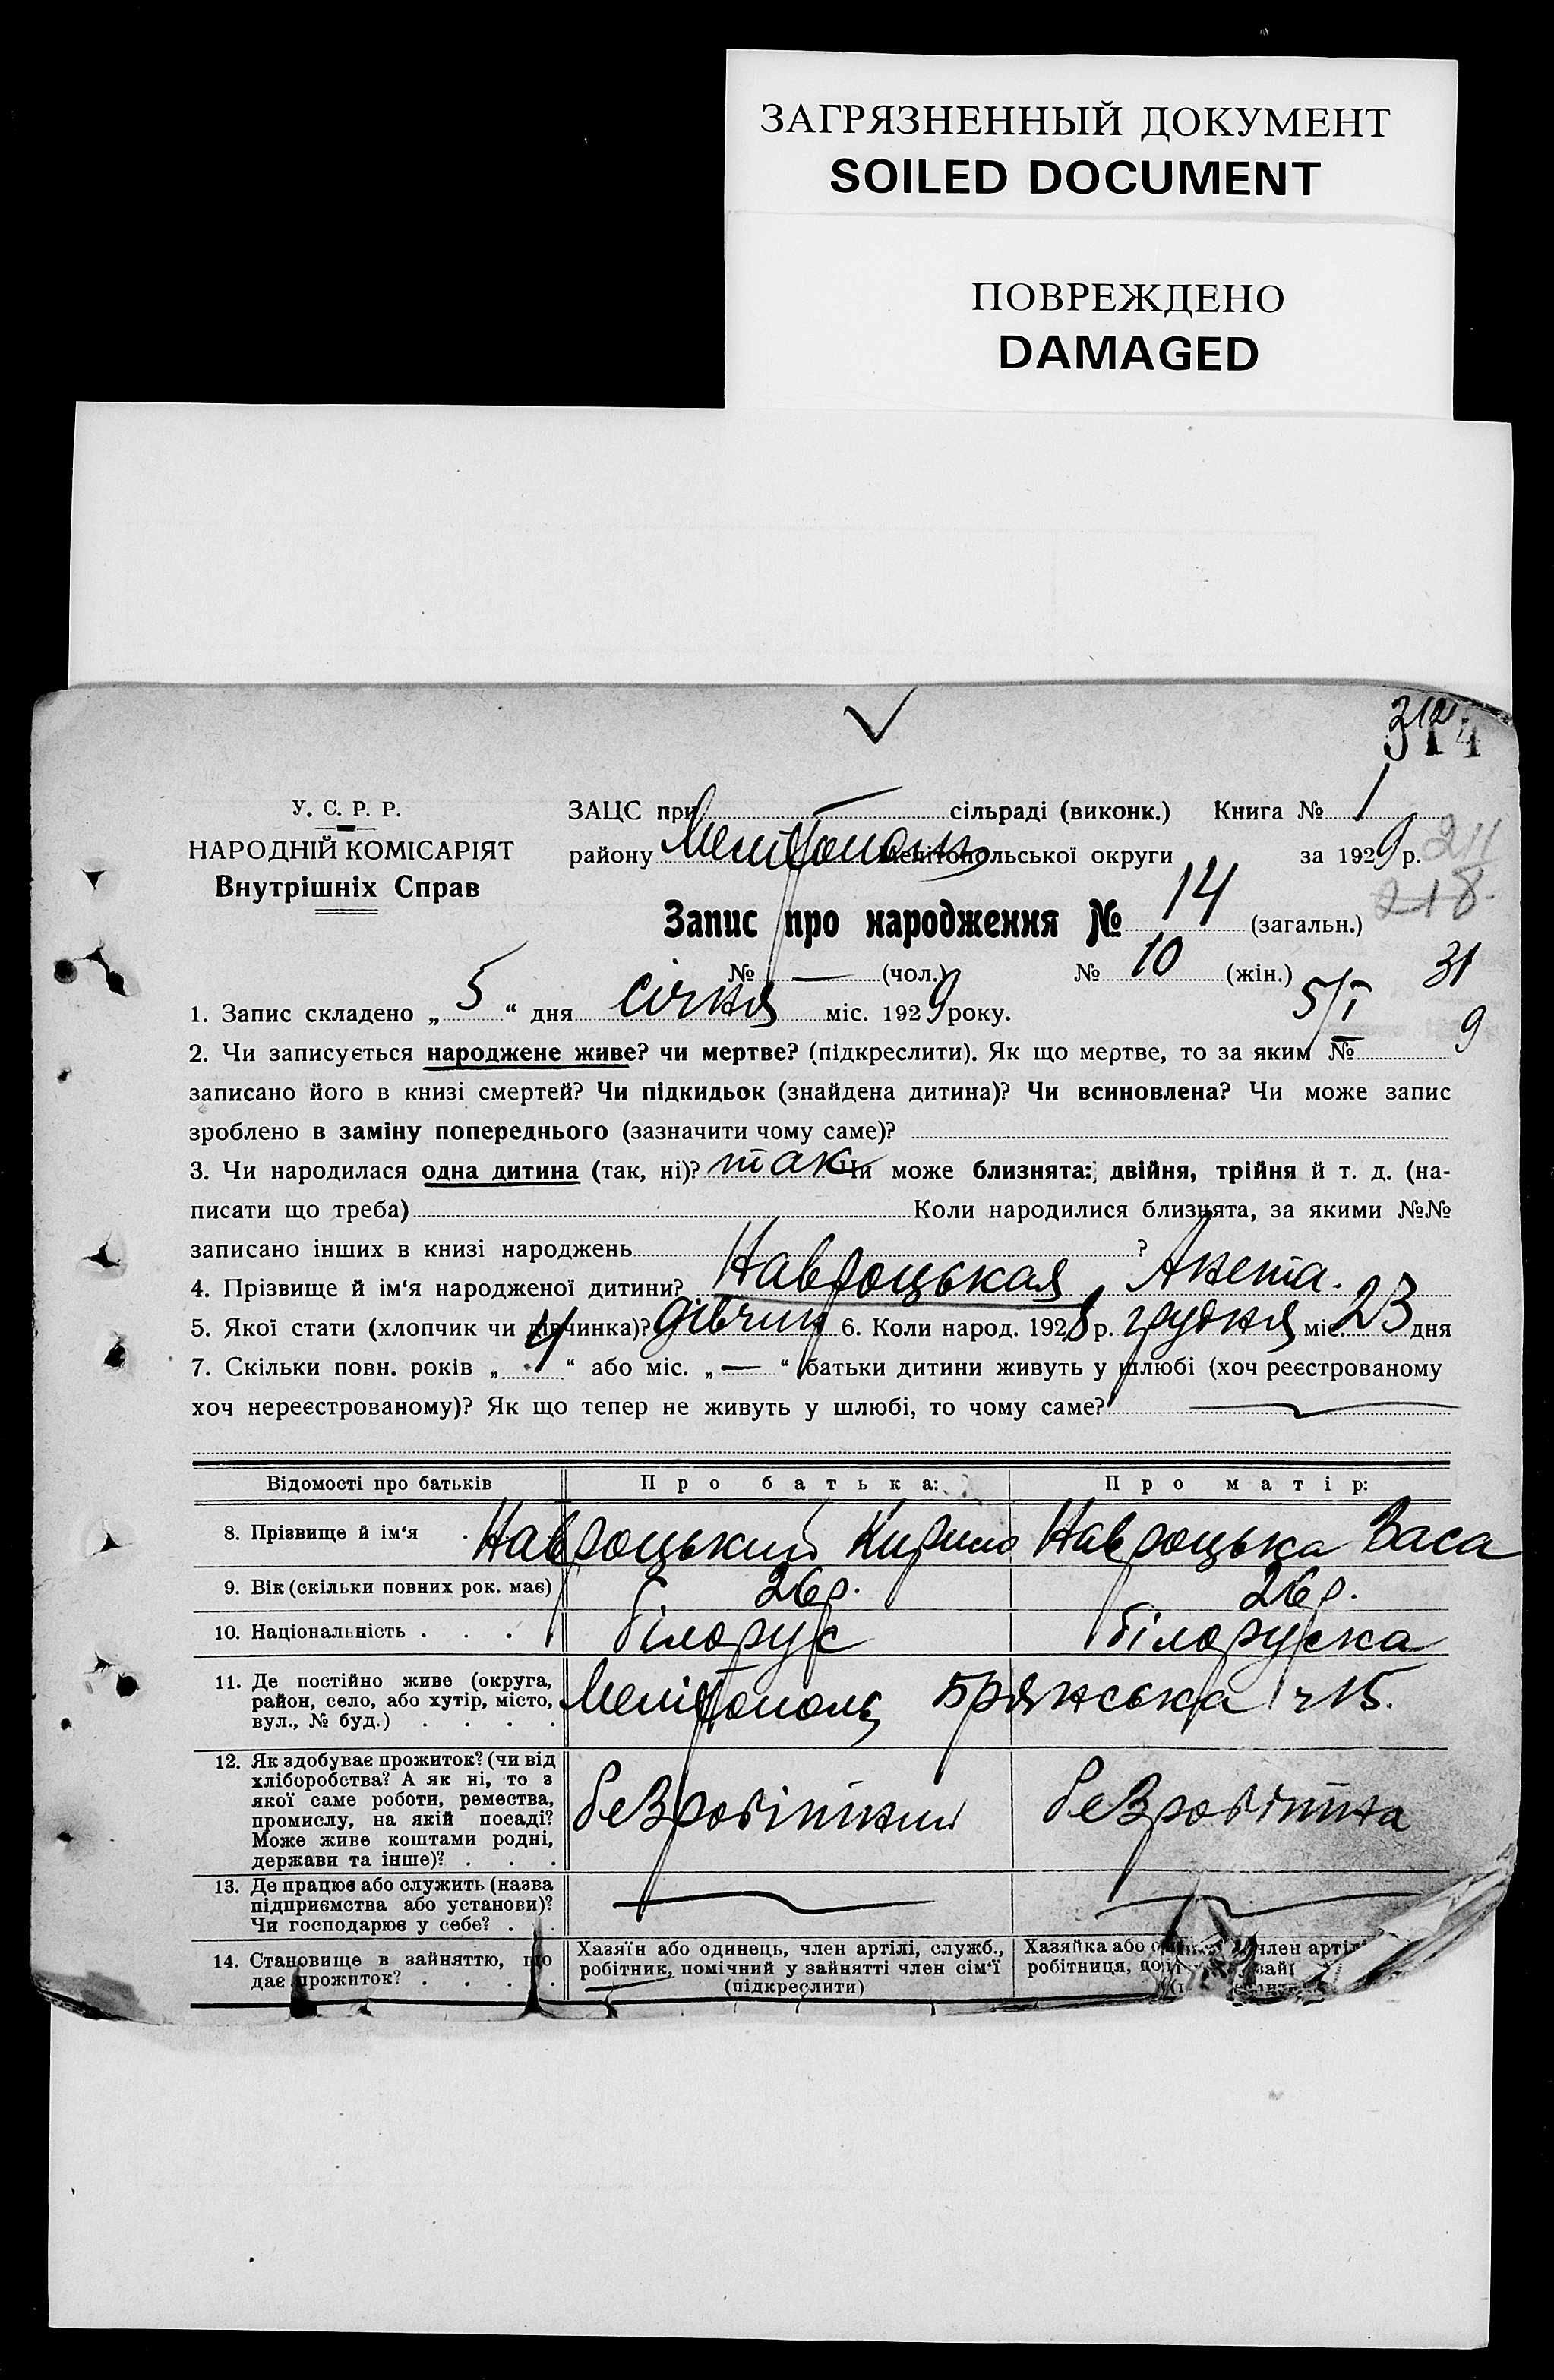 ЗАГРЯЗНЕННЫЙ ДОКУМЕНТ
SOILED DOCUMENT
ПОВРЕЖДЕНО
DAMAGED
312
314
У. С. Р. Р.
НАРОДНІЙ КОМІСАРІЯТ
Внутрішніх Справ
ЗАЦС при — сільраді (виконк.) Книга № 1
району Мелітополь Мелітопольської округи за 1929 р. 211
218
Запис про народження № 14 (загальн.)
№ — (чол.) № 10 (жін.) 31
1. Запис складено „ 5 “ дня січня міс. 1929 року. 5/I 9
2. Чи записується народжене живе? чи мертве? (підкреслити). Як що мертве, то за яким №
записано його в книзі смертей? Чи підкидьок (знайдена дитина)? Чи всиновлена? Чи може запис
зроблено в заміну попереднього (зазначити чому саме)?
3. Чи народилася одна дитина (так, ні)? так Чи може близнята: двійня, трійня й т. д. (на-
писати що треба) Коли народилися близнята, за якими №№
записано інших в книзі народжень ?
4. Прізвище й ім‘я народженої дитини? Навроцькая Анета.
5. Якої стати (хлопчик чи дівчинка)? дівчин 6. Коли народ. 1928 р. грудня міс. 23 дня
7. Скільки повн. років „ 4 “ або міс. „ — “ батьки дитини живуть у шлюбі (хоч реєстрованому
хоч нереєстрованому)? Як що тепер не живуть у шлюбі, то чому саме? —
Відомості про батьків Про батька: Про матір:
8. Прізвище й ім‘я . Навроцький Кирило Навроцька Васа
9. Вік (скільки повних рок. має) 26 р. 26 р.
10. Національність . . . . білорус білоруска
11. Де постійно живе (округа,
район, село, або хутір, місто,
вул., № буд.) . . . .
Мелітополь Брянська ч 15.
12. Як здобуває прожиток? (чи від
хліборобства? А як ні, то з
якої саме роботи, ремества,
промислу, на якій посаді?
Може живе коштами родні,
держави та інше)? . . .
безробітний безробітна
13. Де працює або служить (назва
підприємства або установи)?
Чи господарює у себе? . .
— —
14. Становище в зайняттю, що
дає прожиток? . . . .
Хазяїн або одинець, член артілі, служб.,
робітник, помічний у зайнятті член сім‘ї
(підкреслити)
Хазяйка або член артілі
робітниця,